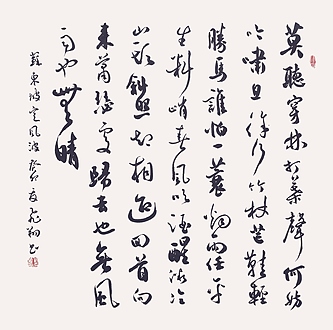 莫聽穿林打葉聲何妨
吟嘯且徐行竹杖芒鞋輕
勝馬誰怕一蓑烟雨任平
生料峭春風吹酒醒微冷
山頭斜照却相迎回首向
來蕭瑟處歸去也無風
雨也無晴
蘇東坡定風波癸卯夏